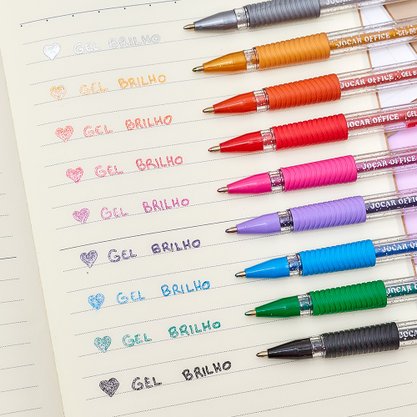 GEL BRILHO
GEL BRILHO
GEL BRILHO
GEL BRILHO
GEL BRILHO
GEL BRILHO
GEL BRILHO
GEL BRILHO
GEL BRILHO
JOCAR OFFICE
JOCAR OFFICE
JOCAR OFFICE
JOCAR OFFICE
JOCAR OFFICE
JOCAR OFFICE
JOCAR OFFICE